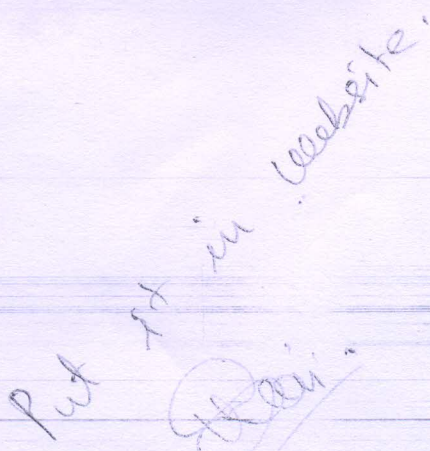 Put it in website.